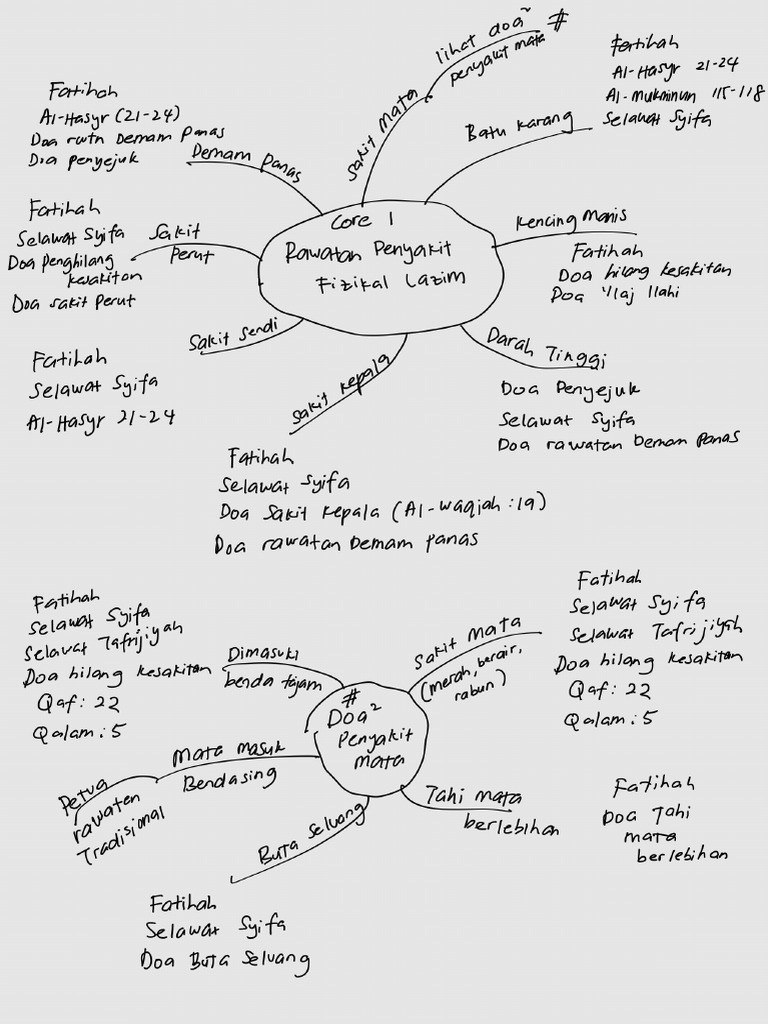 Core 1
Rawatan Penyakit
Fizikal Lazim
Sakit Mata
lihat doa² #
penyakit mata
Batu Karang
Fatihah
Al-Hasyr 21-24
Al-Mukminun 115-118
Selawat Syifa
Kencing Manis
Fatihah
Doa hilang kesakitan
Doa 'Ilaj Ilahi
Darah Tinggi
Doa Penyejuk
Selawat Syifa
Doa rawatan Demam Panas
Sakit Kepala
Fatihah
Selawat Syifa
Doa Sakit Kepala (Al-Waqiah : 19)
Doa rawatan Demam panas
Sakit Sendi
Fatihah
Selawat Syifa
Al-Hasyr 21-24
Sakit
Perut
Fatihah
Selawat Syifa
Doa Penghilang
kesakitan
Doa sakit Perut
Demam Panas
Fatihah
Al-Hasyr (21-24)
Doa rwtn Demam Panas
Doa penyejuk
#
Doa²
Penyakit
Mata
Sakit Mata
(merah, berair,
rabun)
Fatihah
Selawat Syifa
Selawat Tafrijiyah
Doa hilang kesakitan
Qaf : 22
Qalam : 5
Tahi mata
berlebihan
Fatihah
Doa Tahi
mata
berlebihan
Buta Seluang
Fatihah
Selawat Syifa
Doa Buta Seluang
Mata masuk
Bendasing
Petua
rawatan
Tradisional
Dimasuki
benda tajam
Fatihah
Selawat Syifa
Selawat Tafrijiyah
Doa hilang kesakitan
Qaf : 22
Qalam : 5